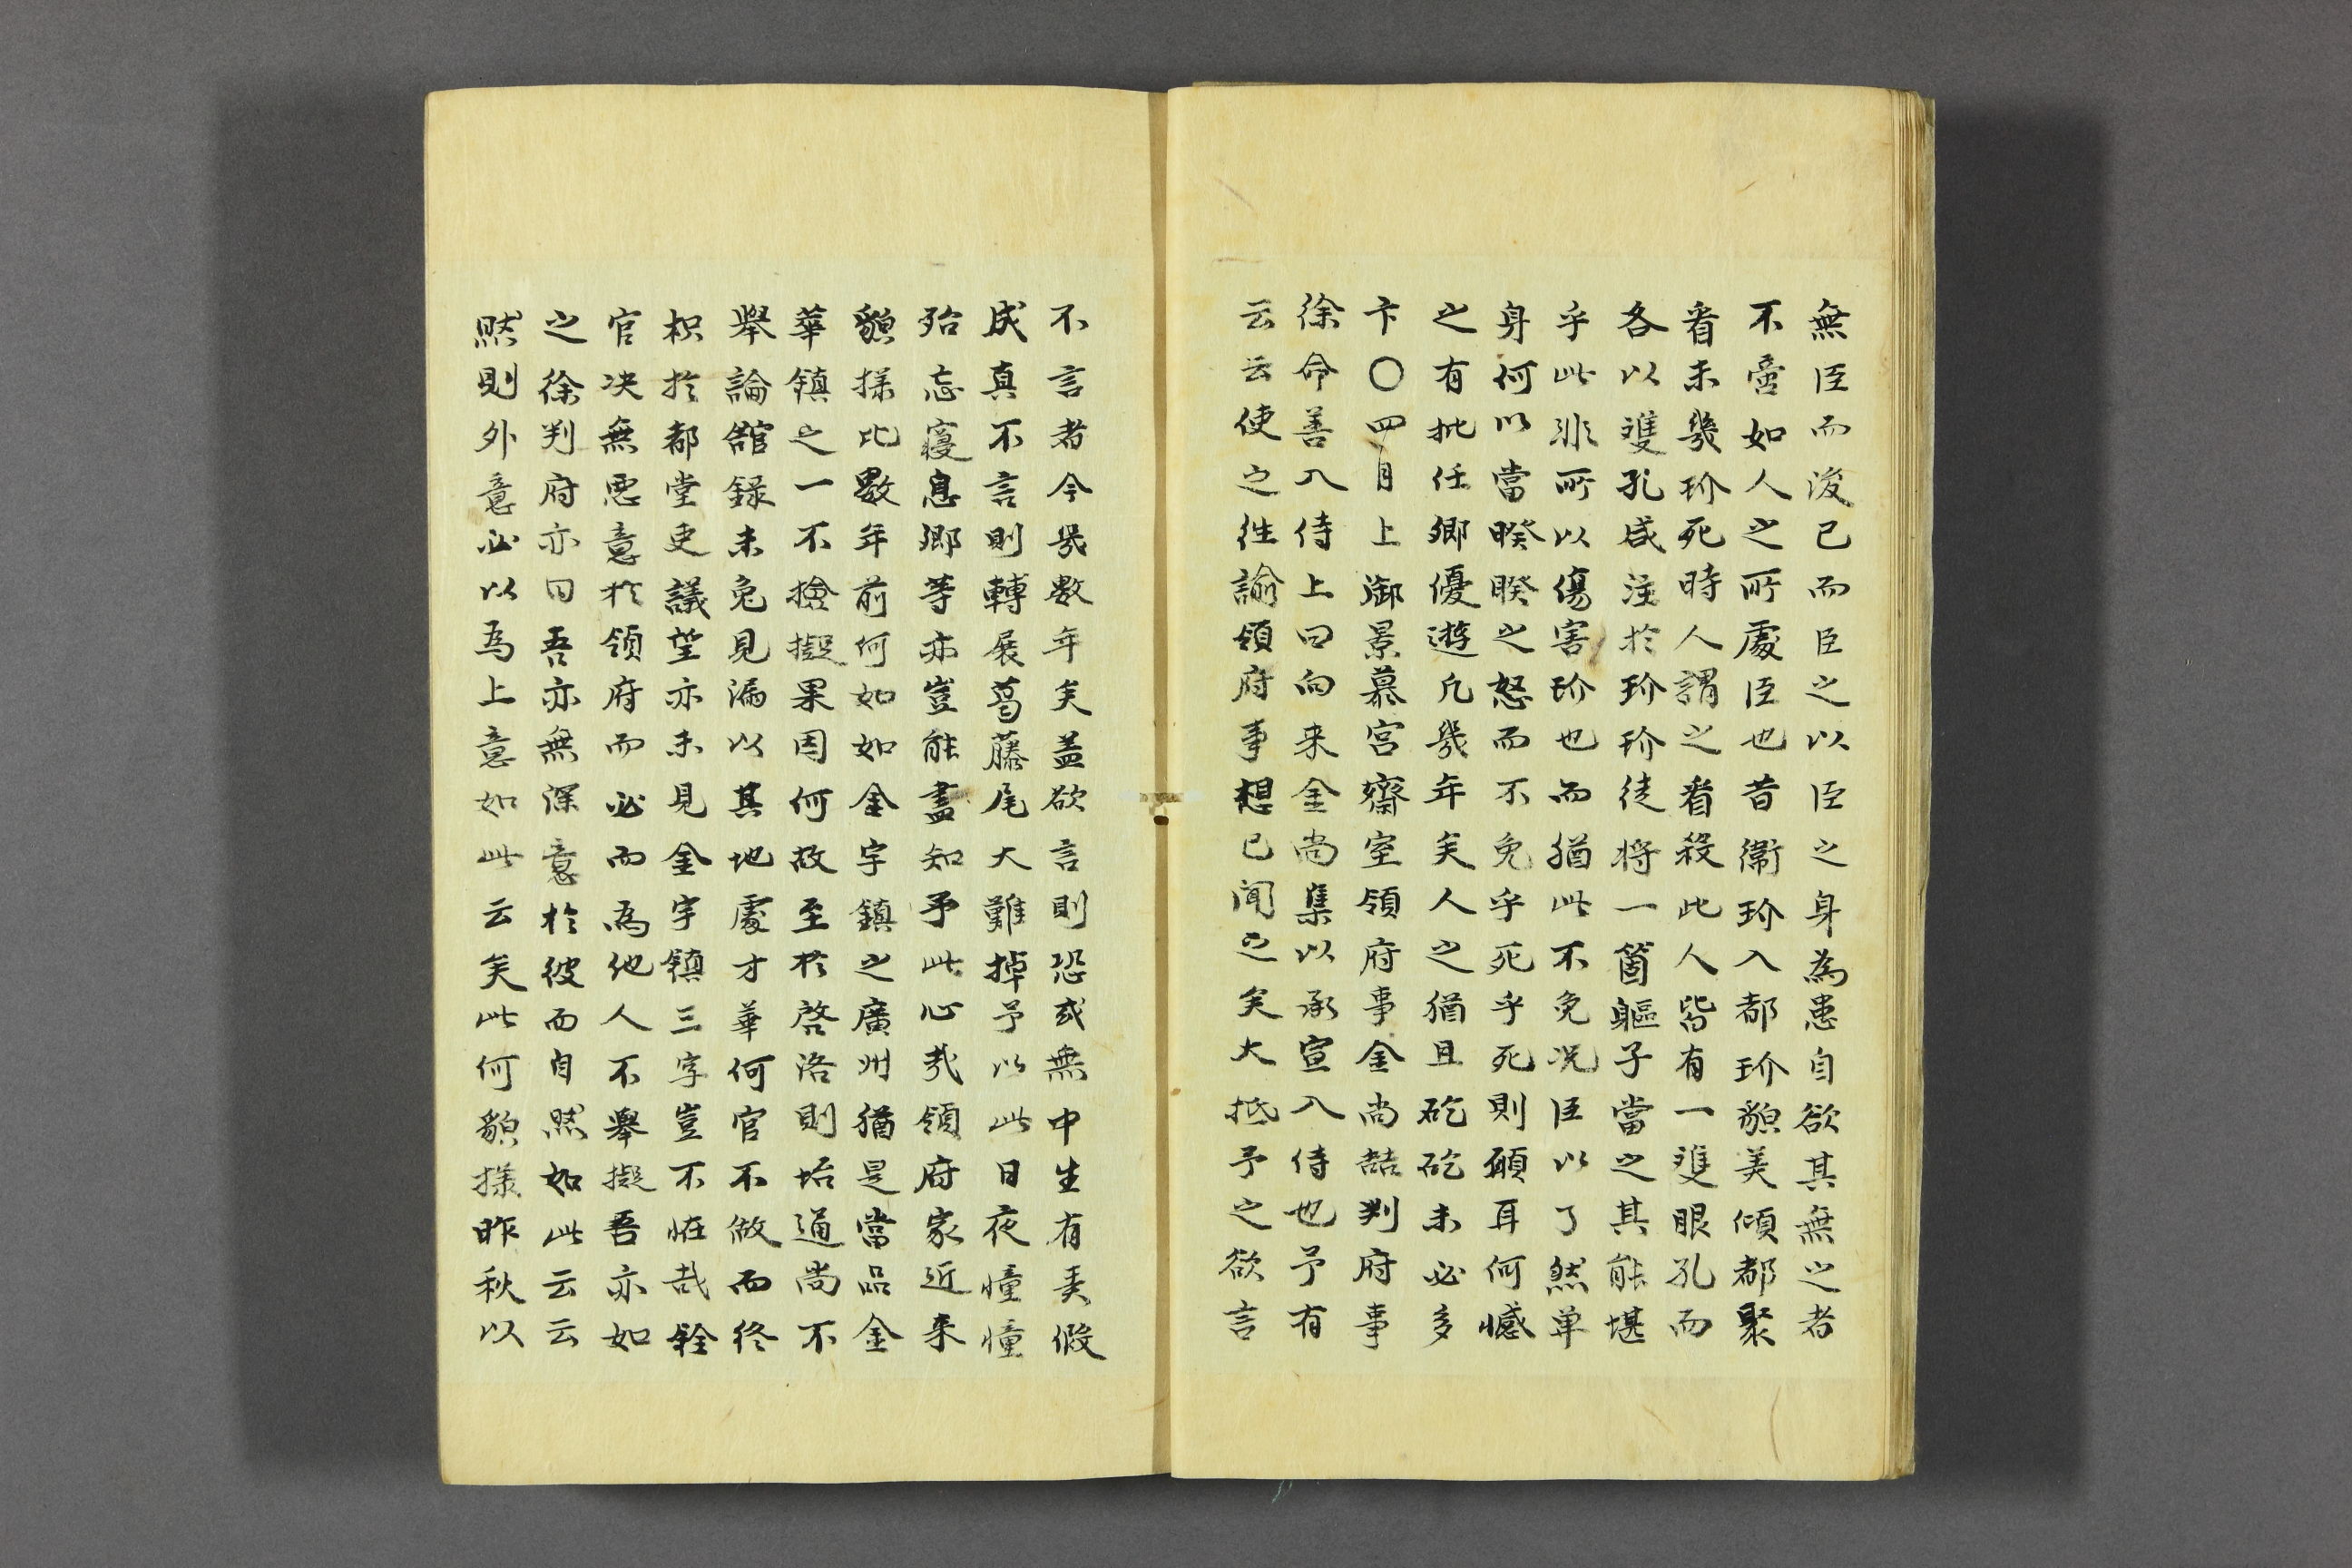 無臣而後已而臣之以臣之身為患自欲其無之者
不啻如人之所處臣也昔衛玠入都玠貌美傾都聚
看未幾玠死時人謂之看殺此人皆有一雙眼孔而
各以雙孔咸注於玠玠徒将一箇軀子當之其能堪
乎此非所以傷害玠也而猶此不免况臣以了然单
身何以當睽睽之怒而不免乎死乎死則願耳何憾
之有批任卿優遊凡幾年矣人之猶且矻矻未必多
卞〇四月上御景慕宮齋室領府事金尚喆判府事
徐命善入侍上曰向来金尚集以承宣入侍也予有
云云使之往諭領府事想已聞之矣大抵予之欲言
不言者今幾數年矣盖欲言則恐或無中生有弄假
成真不言則轉展葛藤尾大難掉予以此日夜憧憧
殆忘寢息卿等亦豈能盡知予此心哉領府家近来
貌樣比數年前何如如金宇鎮之廣州猶是當品金
華鎮之一不擔擬果因何故至於啓洛則坮通尚不
舉論舘錄未免見漏以其地處才華何官不做而終
枳於都堂吏議望亦未見金宇鎮三字豈不恠哉銓
官决無惡意於領府而必而為他人不舉擬吾亦如
之徐判府亦曰吾亦無深意於彼而自然如此云云
然則外意必以為上意如此云矣此何貌樣昨秋以